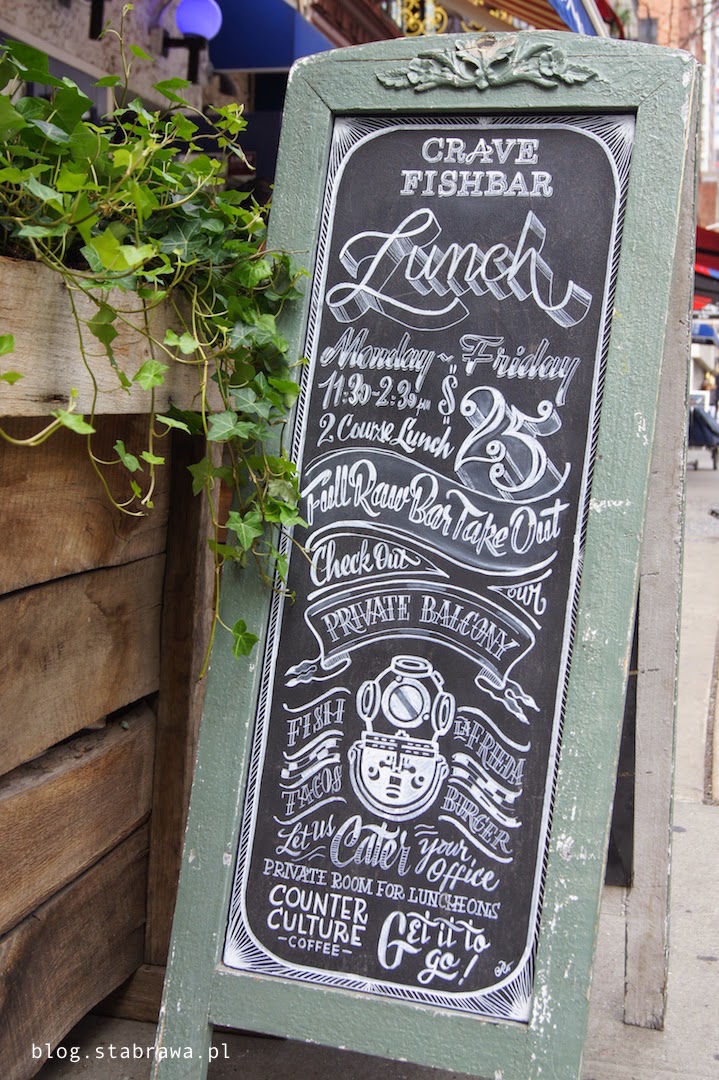 CRAVE
FISHBAR
Lunch
Monday ~ Friday
11:30-2:30pm
2 Course Lunch
$25
Full Raw Bar Take Out
Check Out
our
PRIVATE BALCONY
FISH
TACOS
LA FRIEDA
BURGER
Let us Cater your office
PRIVATE ROOM FOR LUNCHEONS
COUNTER
CULTURE
-COFFEE-
Get it to
go!
blog.stabrawa.pl